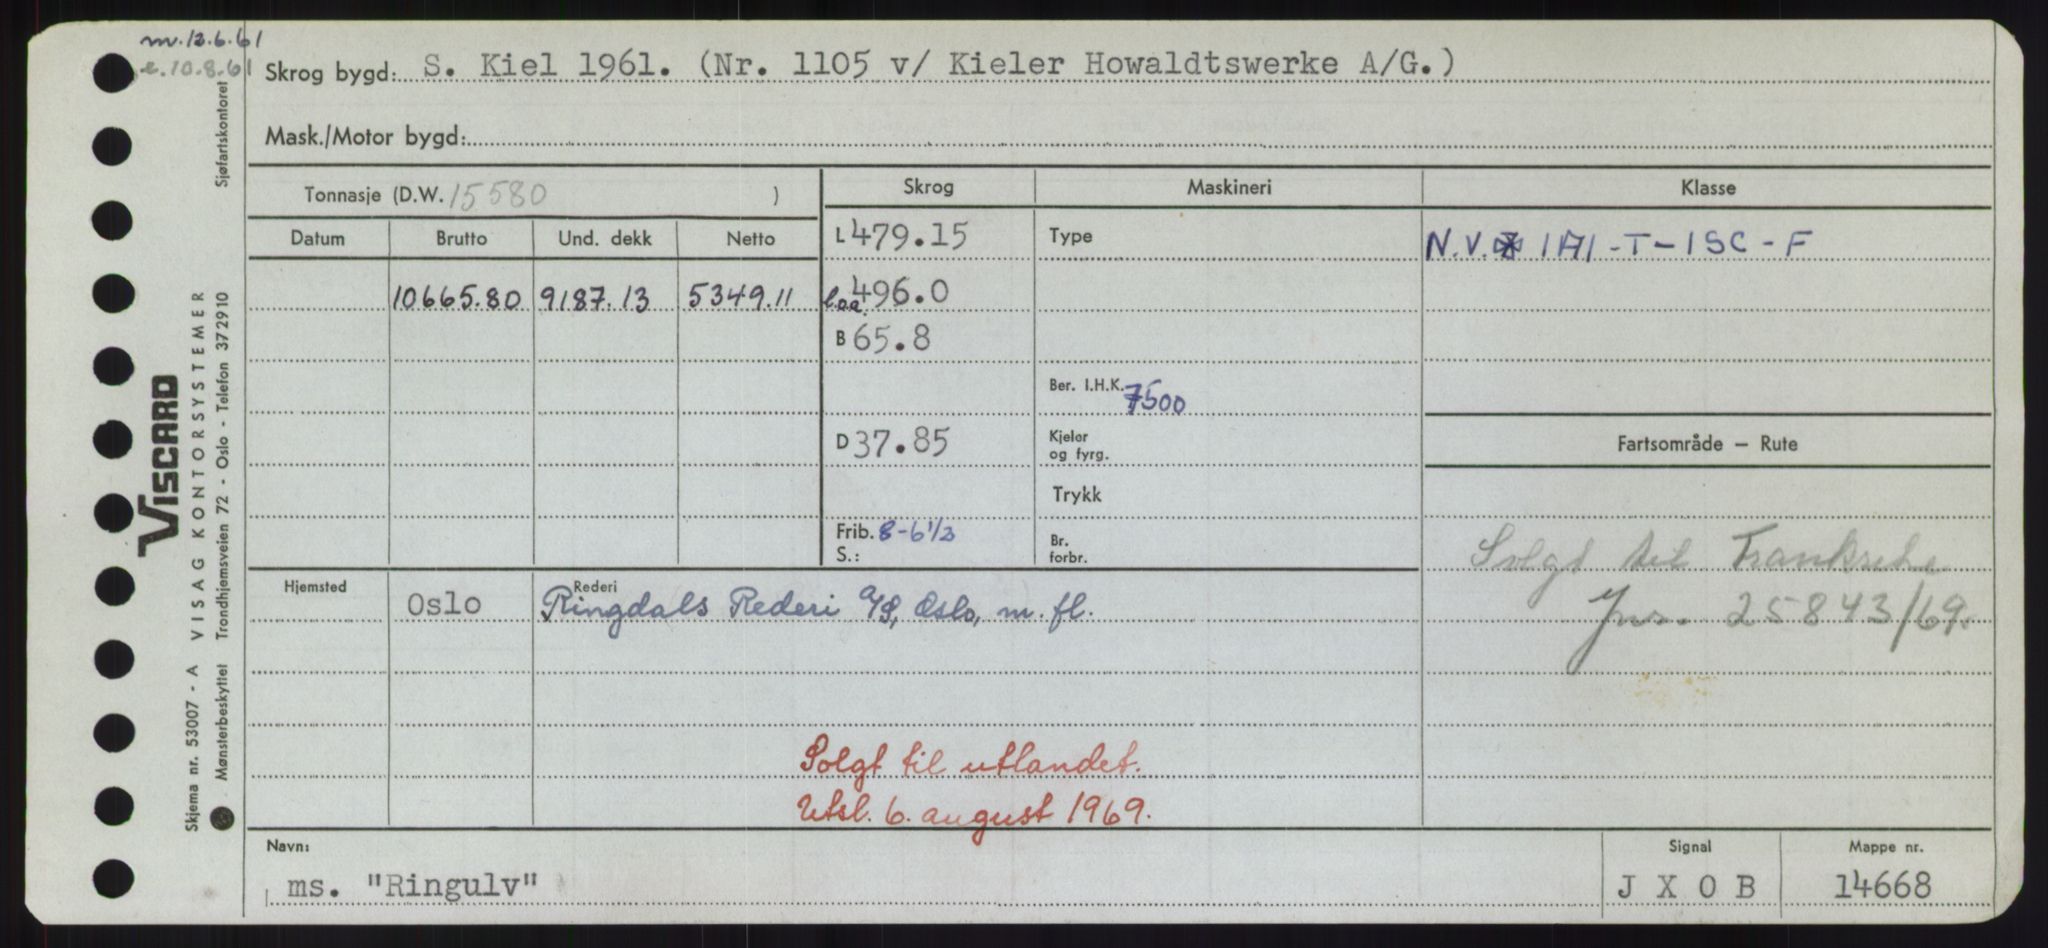 m. 12.6.61
e. 10.8.61
Skrog bygd: S. Kiel 1961. (Nr. 1105 v/ Kieler Howaldtswerke A/G.)
Mask./Motor bygd:
Tonnasje (D.W. 15580 )
Skrog Maskineri Klasse
Datum Brutto Und. dekk Netto
L 479.15 Type N.V. ✠ 1A1 - T - ISC - F
10665.80 9187.13 5349.11 l.o.a. 496.0
B 65.8
Ber. I.H.K. 7500
D 37.85 Kjeler og fyrg. Fartsområde — Rute
Trykk
Frib. 8-6½
S.: Br. forbr.
Solgt til Frankrike
Jnr. 25843/69.
Hjemsted Rederi
Oslo Ringdals Rederi A/S, Oslo, m. fl.
Solgt til utlandet.
Utsl. 6. august 1969.
Navn: Signal Mappe nr.
ms. "Ringulv" J X O B 14668
Skjema nr. 53007 - A VISAG KONTORSYSTEMER
Mønsterbeskyttet Trondhjemsveien 72 - Oslo - Telefon 372910 Sjøfartskontoret
VISCARD